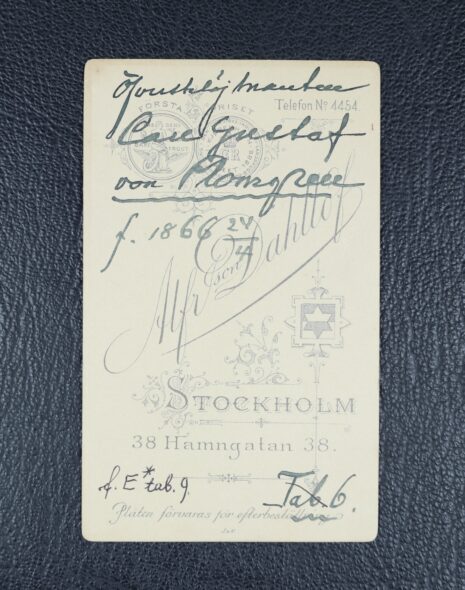 FÖRSTA PRISET
Telefon Nº 4454.
Carl Gustaf
von Plomgren
f. 1866 24/4
Alfr. Dahllöf
STOCKHOLM
38 Hamngatan 38.
f. E* tab. 9.
Tab. 6.
Platen förvaras för efterbeställning